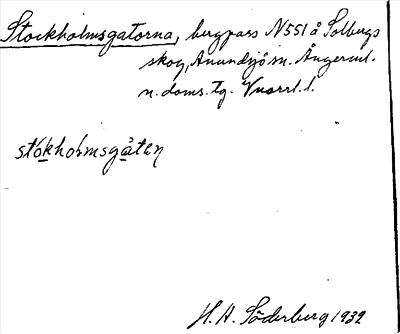 Stockholmsgatorna, bergpass N 551 å Solbergs
skog, Anundsjö sn. Ångerml.
n. doms. tg. Vnorrl. l.
stókholmsgåten
H. A. Söderberg 1932